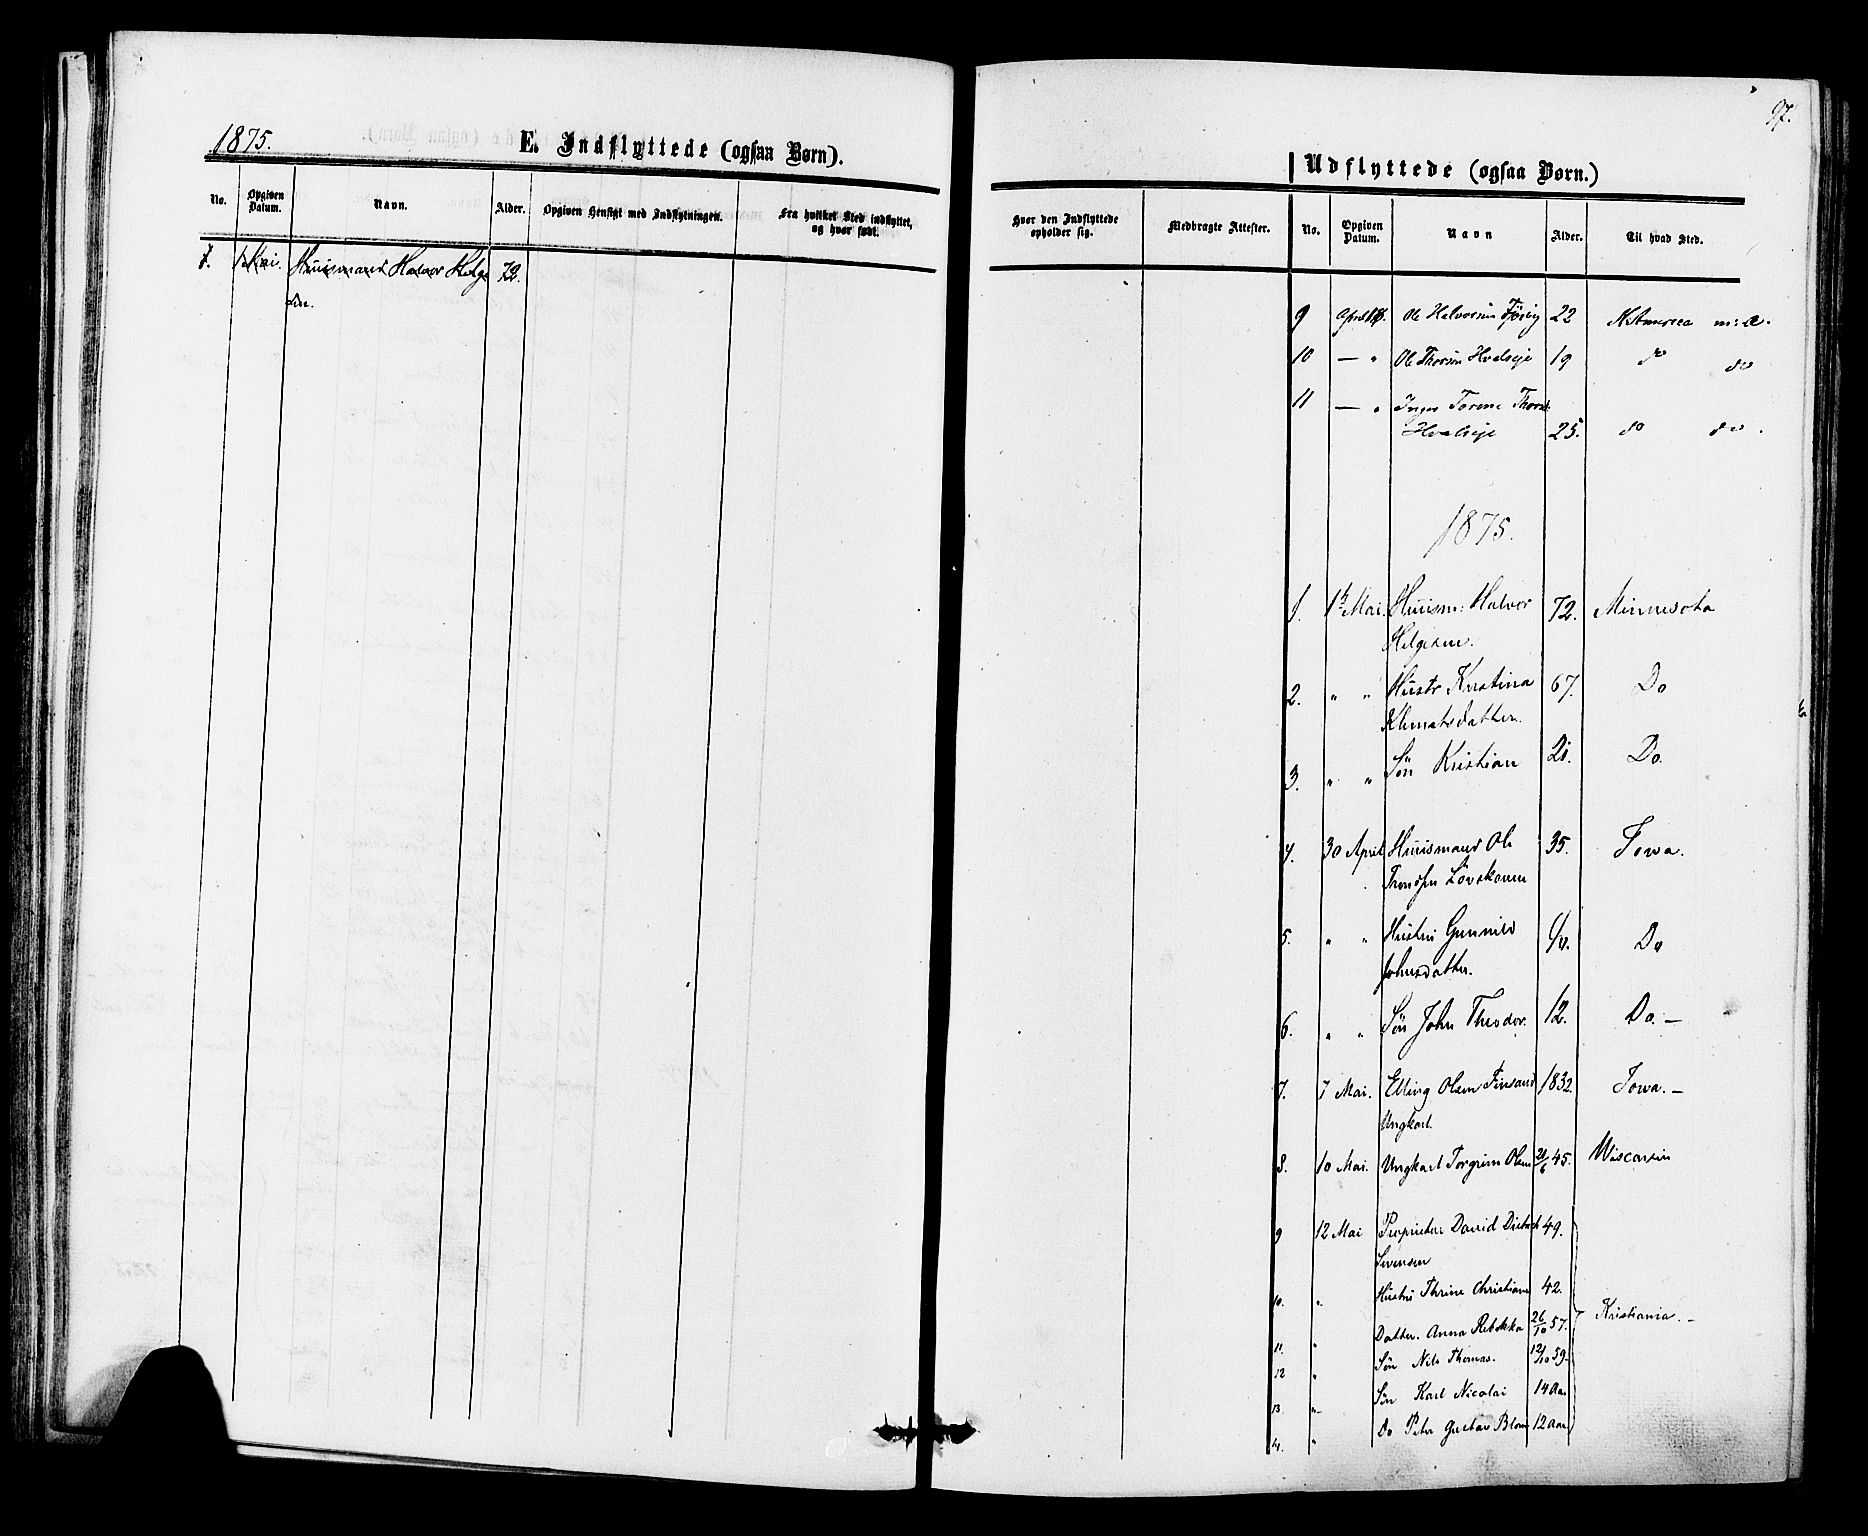 1875.
E. Indflyttede (ogsaa Børn).
No. Opgiven Datum. Navn. Alder. Opgiven Hensigt med Indflytningen. Fra hvilket Sted indflyttet, og hvor født.
1. 1 Mai. Huusmand Halvor Helge 72.
sen.
97.
Udflyttede (ogsaa Børn.)
Hvor den Indflyttede opholder sig. Medbragte Attester. No. Opgiven Datum. Navn Alder. Til hvad Sted.
9 April Ole Halvorsen 22 N America m: a.
10 — " Ole Thorsen Hvalseje 19 do do
11 — " Inger Torine Thorsd:
Hvalseje 25. do do.
1875.
1. 1ste Mai. Huusm: Halvor 72. Minnesota
Helgesen.
2. " " Hustr Kristina 67. Do
Klemetsdatter.
3. " " Søn Kristian 21. Do.
4. 30 April Huusmand Ole 35. Iowa.
Trondsen Løvskoven
5. " " Hustru Gunnild Do
Johnsdatter.
6. " " Søn John Theodor. 12. Do. —
7. 7 Mai. Elling Olsen Finsand 1832. Iowa. —
Ungkarl.
8. 10 Mai. Ungkarl Torgrim Olsen 21/6 45. Wisconsin
9 12 Mai Proprietær David 49.
Svensen
10. " Hustru Thrine Christiane 42.
11. " Datter. Anna Rebekka 26/10 57. Kristiania. —
12 " Søn Nils Thomas. 12/10 59.
13. " Søn Karl Nicolai 14 Aar
14. " Do Peter Gustav Blom 12 Aar